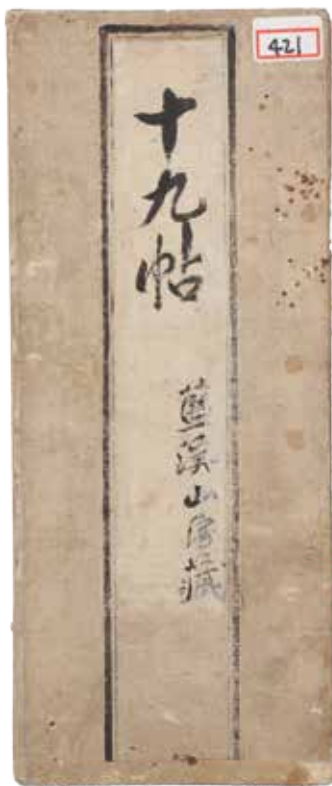 421
十九帖
藍溪山房藏